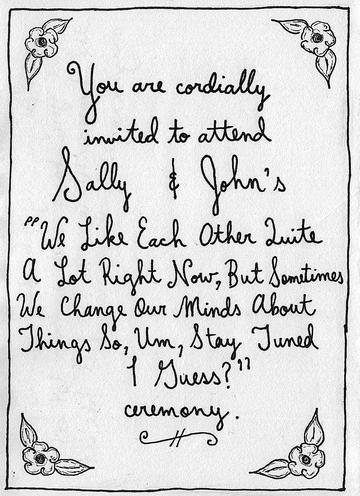 You are cordially
invited to attend
Sally & John's
"We Like Each Other Quite
A Lot Right Now, But Sometimes
We Change Our Minds About
Things So, Um, Stay Tuned
I Guess?"
ceremony.